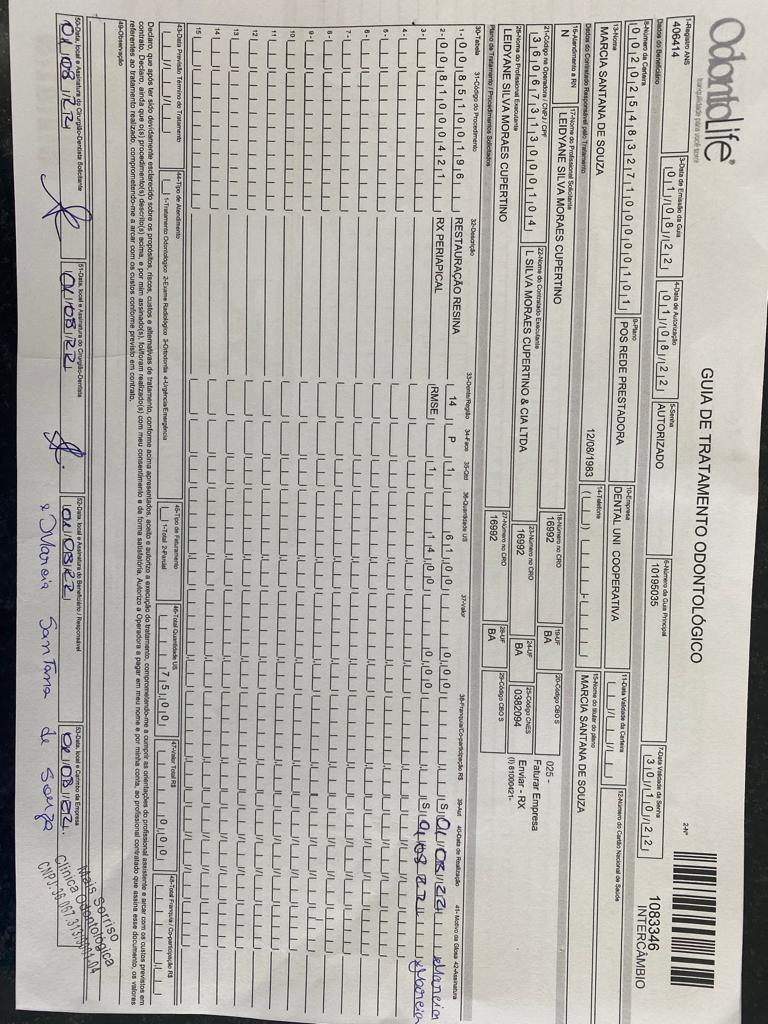 OdontoLife®
tranquilidade para você sorrir
GUIA DE TRATAMENTO ODONTOLÓGICO
2-Nº
1083346
INTERCÂMBIO
1-Registro ANS
406414
3-Data de Emissão da Guia
01/08/22
4-Data de Autorização
01/08/22
5-Senha
AUTORIZADO
6-Número da Guia Principal
10195035
7-Data Validade da Senha
30/10/22
Dados do Beneficiário
8-Número da Carteira
00202548327100000101
9-Plano
POS REDE PRESTADORA
10-Empresa
DENTAL UNI COOPERATIVA
11-Data Validade da Carteira
12-Número do Cartão Nacional de Saúde
13-Nome
MARCIA SANTANA DE SOUZA
12/08/1983
14-Telefone
15-Nome do titular do plano
MARCIA SANTANA DE SOUZA
Dados do Contratado Responsável pelo Tratamento
16-Atendimento a RN
N
17-Nome do Profissional Solicitante
LEIDYANE SILVA MORAES CUPERTINO
18-Número no CRO
16992
19-UF
BA
20-Código CBO S
025 -
Faturar Empresa
Enviar - RX
(I) 81000421-
21-Código na Operadora / CNPJ / CPF
36067313000104
22-Nome do Contratado Executante
L SILVA MORAES CUPERTINO & CIA LTDA
23-Número no CRO
16992
24-UF
BA
25-Código CNES
0382094
26-Nome do Profissional Executante
LEIDYANE SILVA MORAES CUPERTINO
27-Número no CRO
16992
28-UF
BA
29-Código CBO S
Plano de Tratamento / Procedimentos Solicitados
30-Tabela 31-Código do Procedimento 32-Descrição 33-Dente/Região 34-Face 35-Qtd 36-Quantidade US 37-Valor 38-Franquia/Co-participação R$ 39-Aut 40-Data de Realização 41- Motivo da Glosa 42-Assinatura
1- 00 85100196 RESTAURAÇÃO RESINA 14 P 1 61,00 0,00 S 01/08/22 x Marcia
2- 00 81000421 RX PERIAPICAL RMSE 1 14,00 0,00 S 01/08/22 x Marcia
3-
4-
5-
6-
7-
8-
9-
10
11
12
13
14
15
43-Data Previsão Término do Tratamento
44-Tipo de Atendimento
1-Tratamento Odontológico 2-Exame Radiológico 3-Ortodontia 4-Urgência/Emergência
45-Tipo de Faturamento
1-Total 2-Parcial
46-Total Quantidade US
75,00
47-Valor Total R$
0,00
48-Total Franquia / Co-participação R$
Declaro, que após ter sido devidamente esclarecido sobre os propósitos, riscos, custos e alternativas de tratamento, conforme acima apresentados, aceito e autorizo a execução do tratamento, comprometendo-me a cumprir as orientações do profissional assistente e arcar com os custos previstos em
contrato. Declaro, ainda que o(s) procedimento(s) descrito(s) acima, e por mim assinado(s), foi/foram realizado(s) com meu consentimento e de forma satisfatória. Autorizo a Operadora a pagar em meu nome e por minha conta, ao profissional contratado que assina esse documento, os valores
referentes ao tratamento realizado, comprometendo-me a arcar com os custos conforme previsto em contrato.
49-Observação
50-Data, local e Assinatura do Cirurgião-Dentista Solicitante
01/08/22
51-Data, local e Assinatura do Cirurgião-Dentista
01/08/22
52-Data, local e Assinatura do Beneficiário / Responsável
01/08/22
x Marcia Santana de Souza
53-Data, local e Carimbo da Empresa
01/08/22
Mais Sorriso
Clínica Odontológica
CNPJ:36.067.313/0001-04